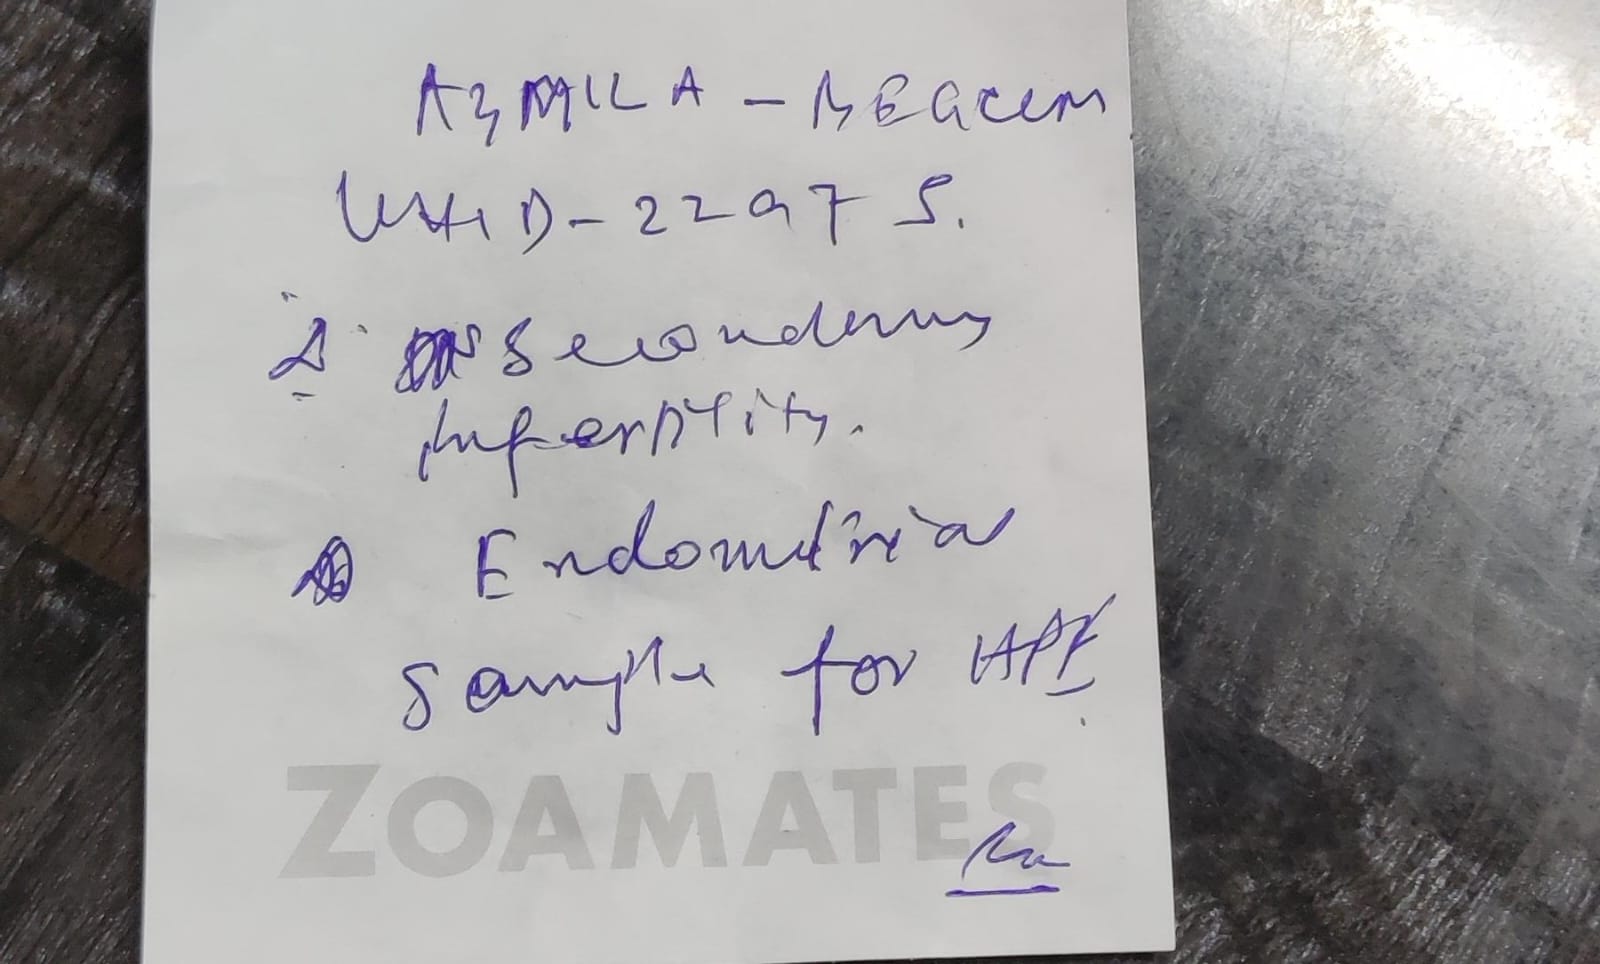 AZMILA - BEGUM
UHID - 22975.
Secondary
Infertility.
Endometrial
Sample for HPE
ZOAMATES